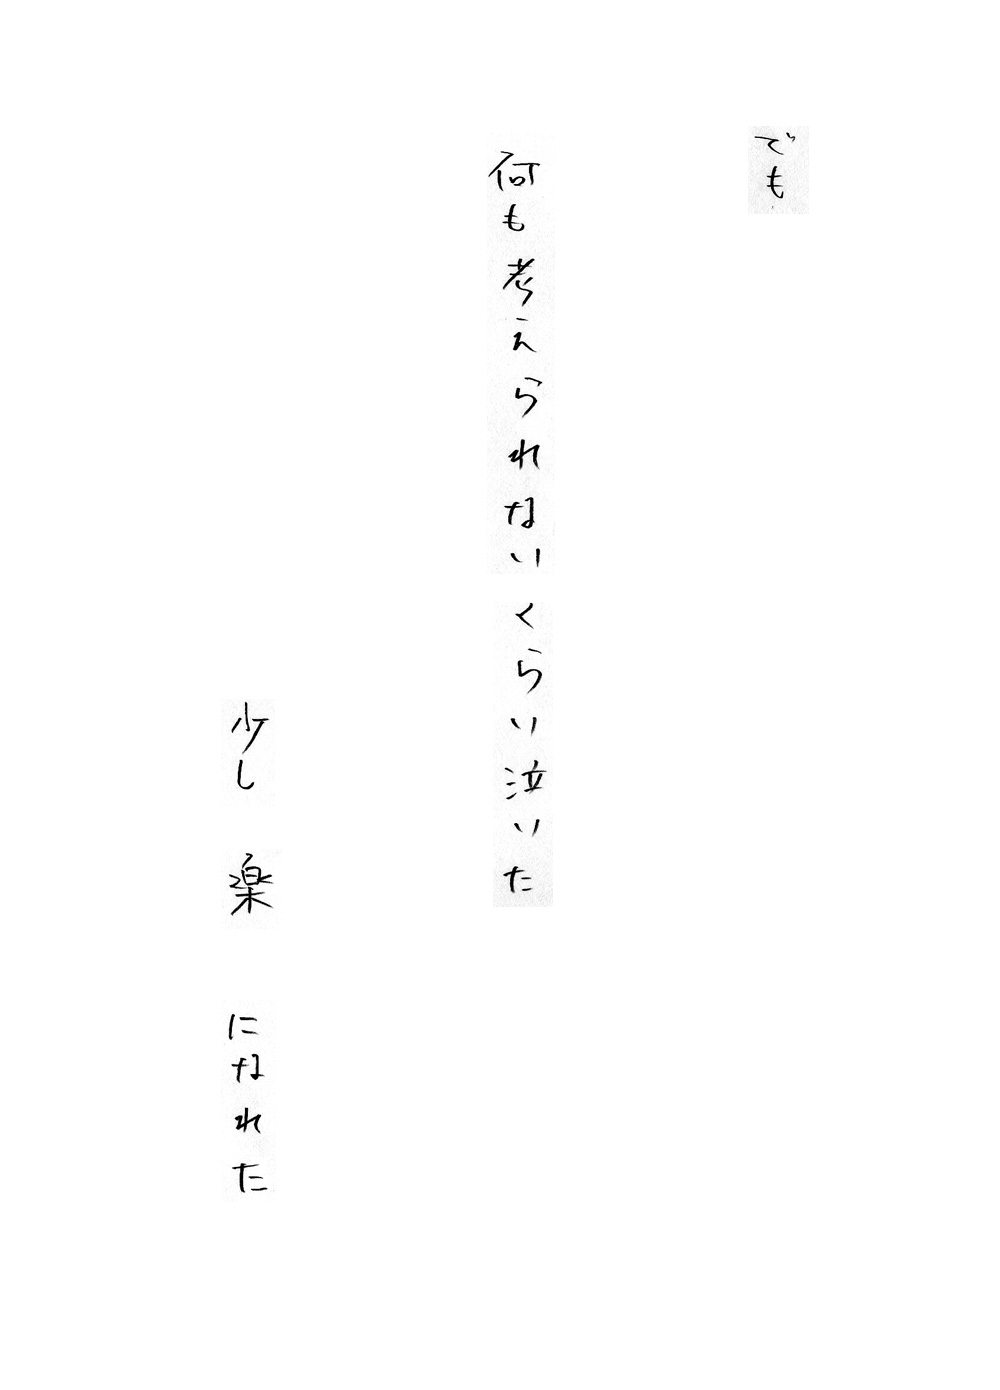 でも
何も考えられないくらい泣いた
少し楽になれた